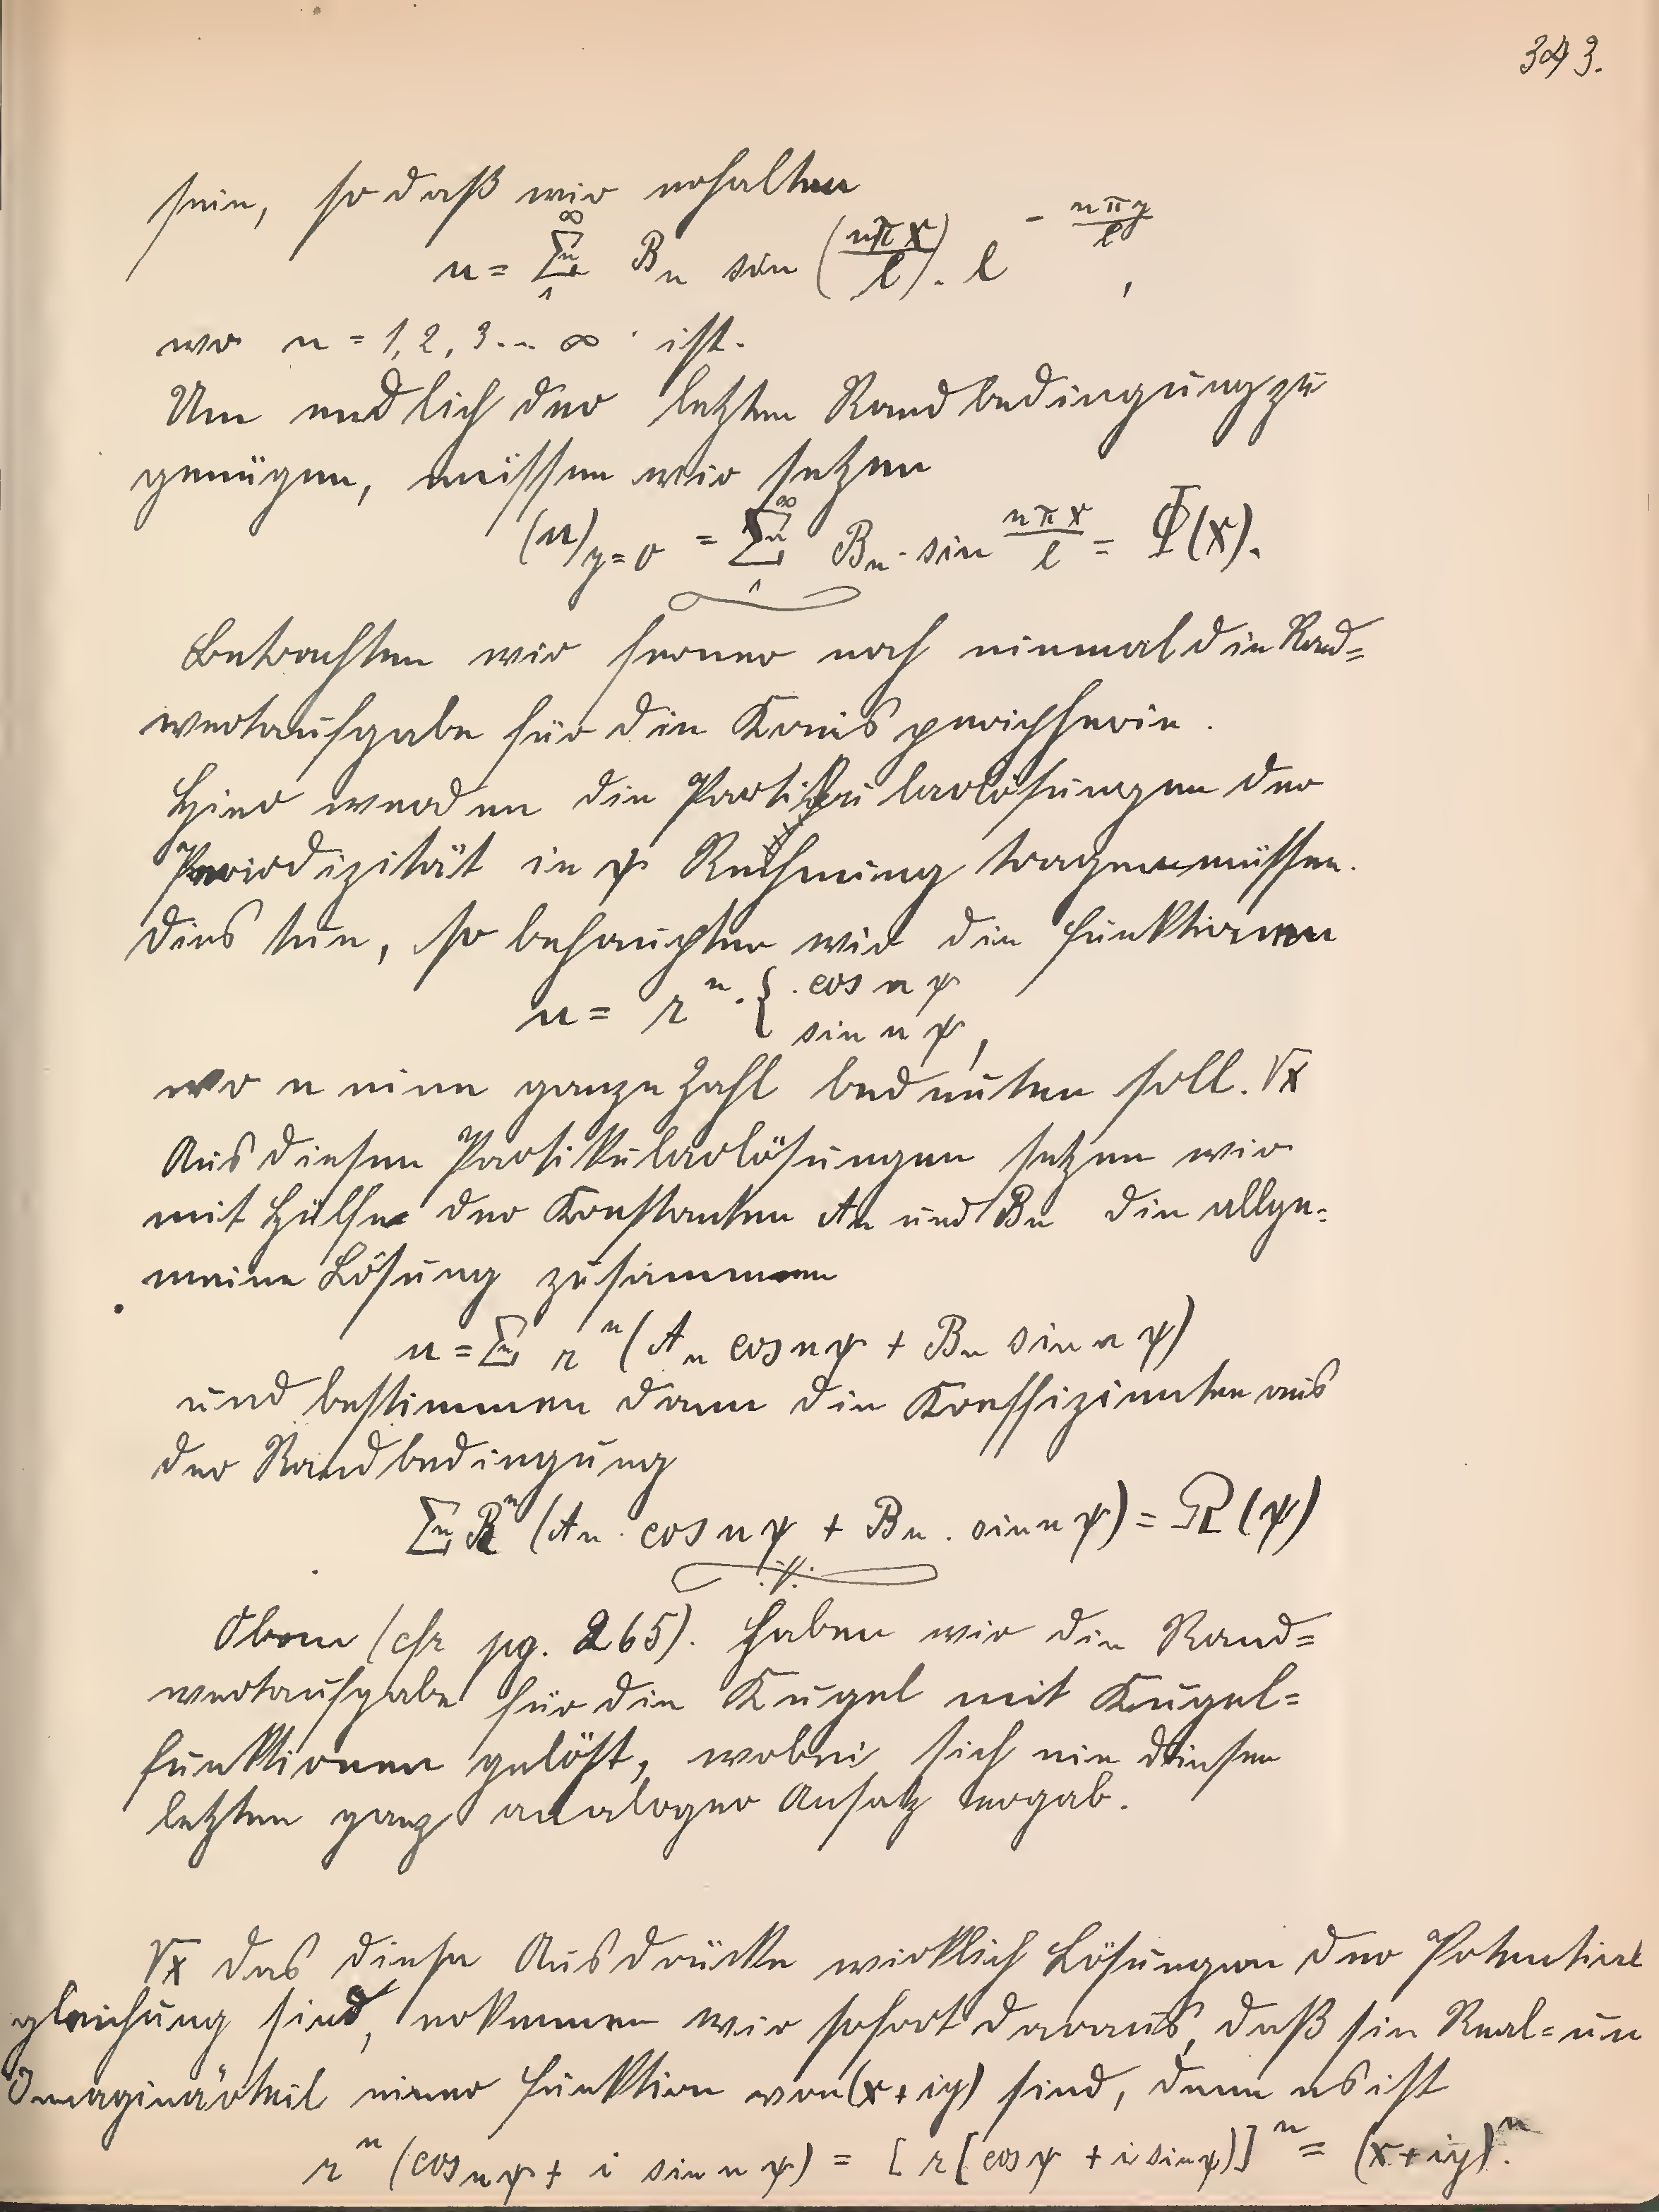 343.
sein, so daß wir erhalten
u = Σn_1^∞ Bn sin (nπx/l) . e^{- nπy/l} ,
wo n = 1, 2, 3 ... ∞ ist.
Um endlich der letzten Randbedingung zu
genügen, müssen wir setzen
(u)y=0 = Σn_1^∞ Bn · sin nπx/l = Φ(x).
Betrachten wir ferner noch einmal die Rand=
wertaufgabe für die Kreisperipherie.
Hier werden die Partikularlösungen der
Periodizität in ψ Rechnung tragen müssen.
Dies tun, so behaupten wir die Funktionen
u = r^n · { cos nψ
sin nψ ,
wo n eine ganze Zahl bedeuten soll. Vx
Aus diesen Partikularlösungen setzen wir
mit Hülfe der Konstanten An und Bn die allge=
meine Lösung zusammen
u = Σn r^n (An cos nψ + Bn sin nψ)
und bestimmen dann die Koeffizienten aus
der Randbedingung
Σn R^n (An · cos nψ + Bn . sin nψ) = Ω(ψ)
Oben (cfr pg. 265). haben wir die Rand=
wertaufgabe für die Kugel mit Kugel=
funktionen gelöst, wobei sich ein diesem
letzten ganz analoger Ansatz ergab.
Vx das diese Ausdrücke wirklich Lösungen der Potential
gleichung sind, erkennen wir sofort daraus, daß sie Real= un
Imaginärteil einer Funktion von (x + iy) sind, denn es ist
r^n (cos nψ + i sin nψ) = [ r [cos ψ + i sin ψ)]^n = (x + iy)^n.